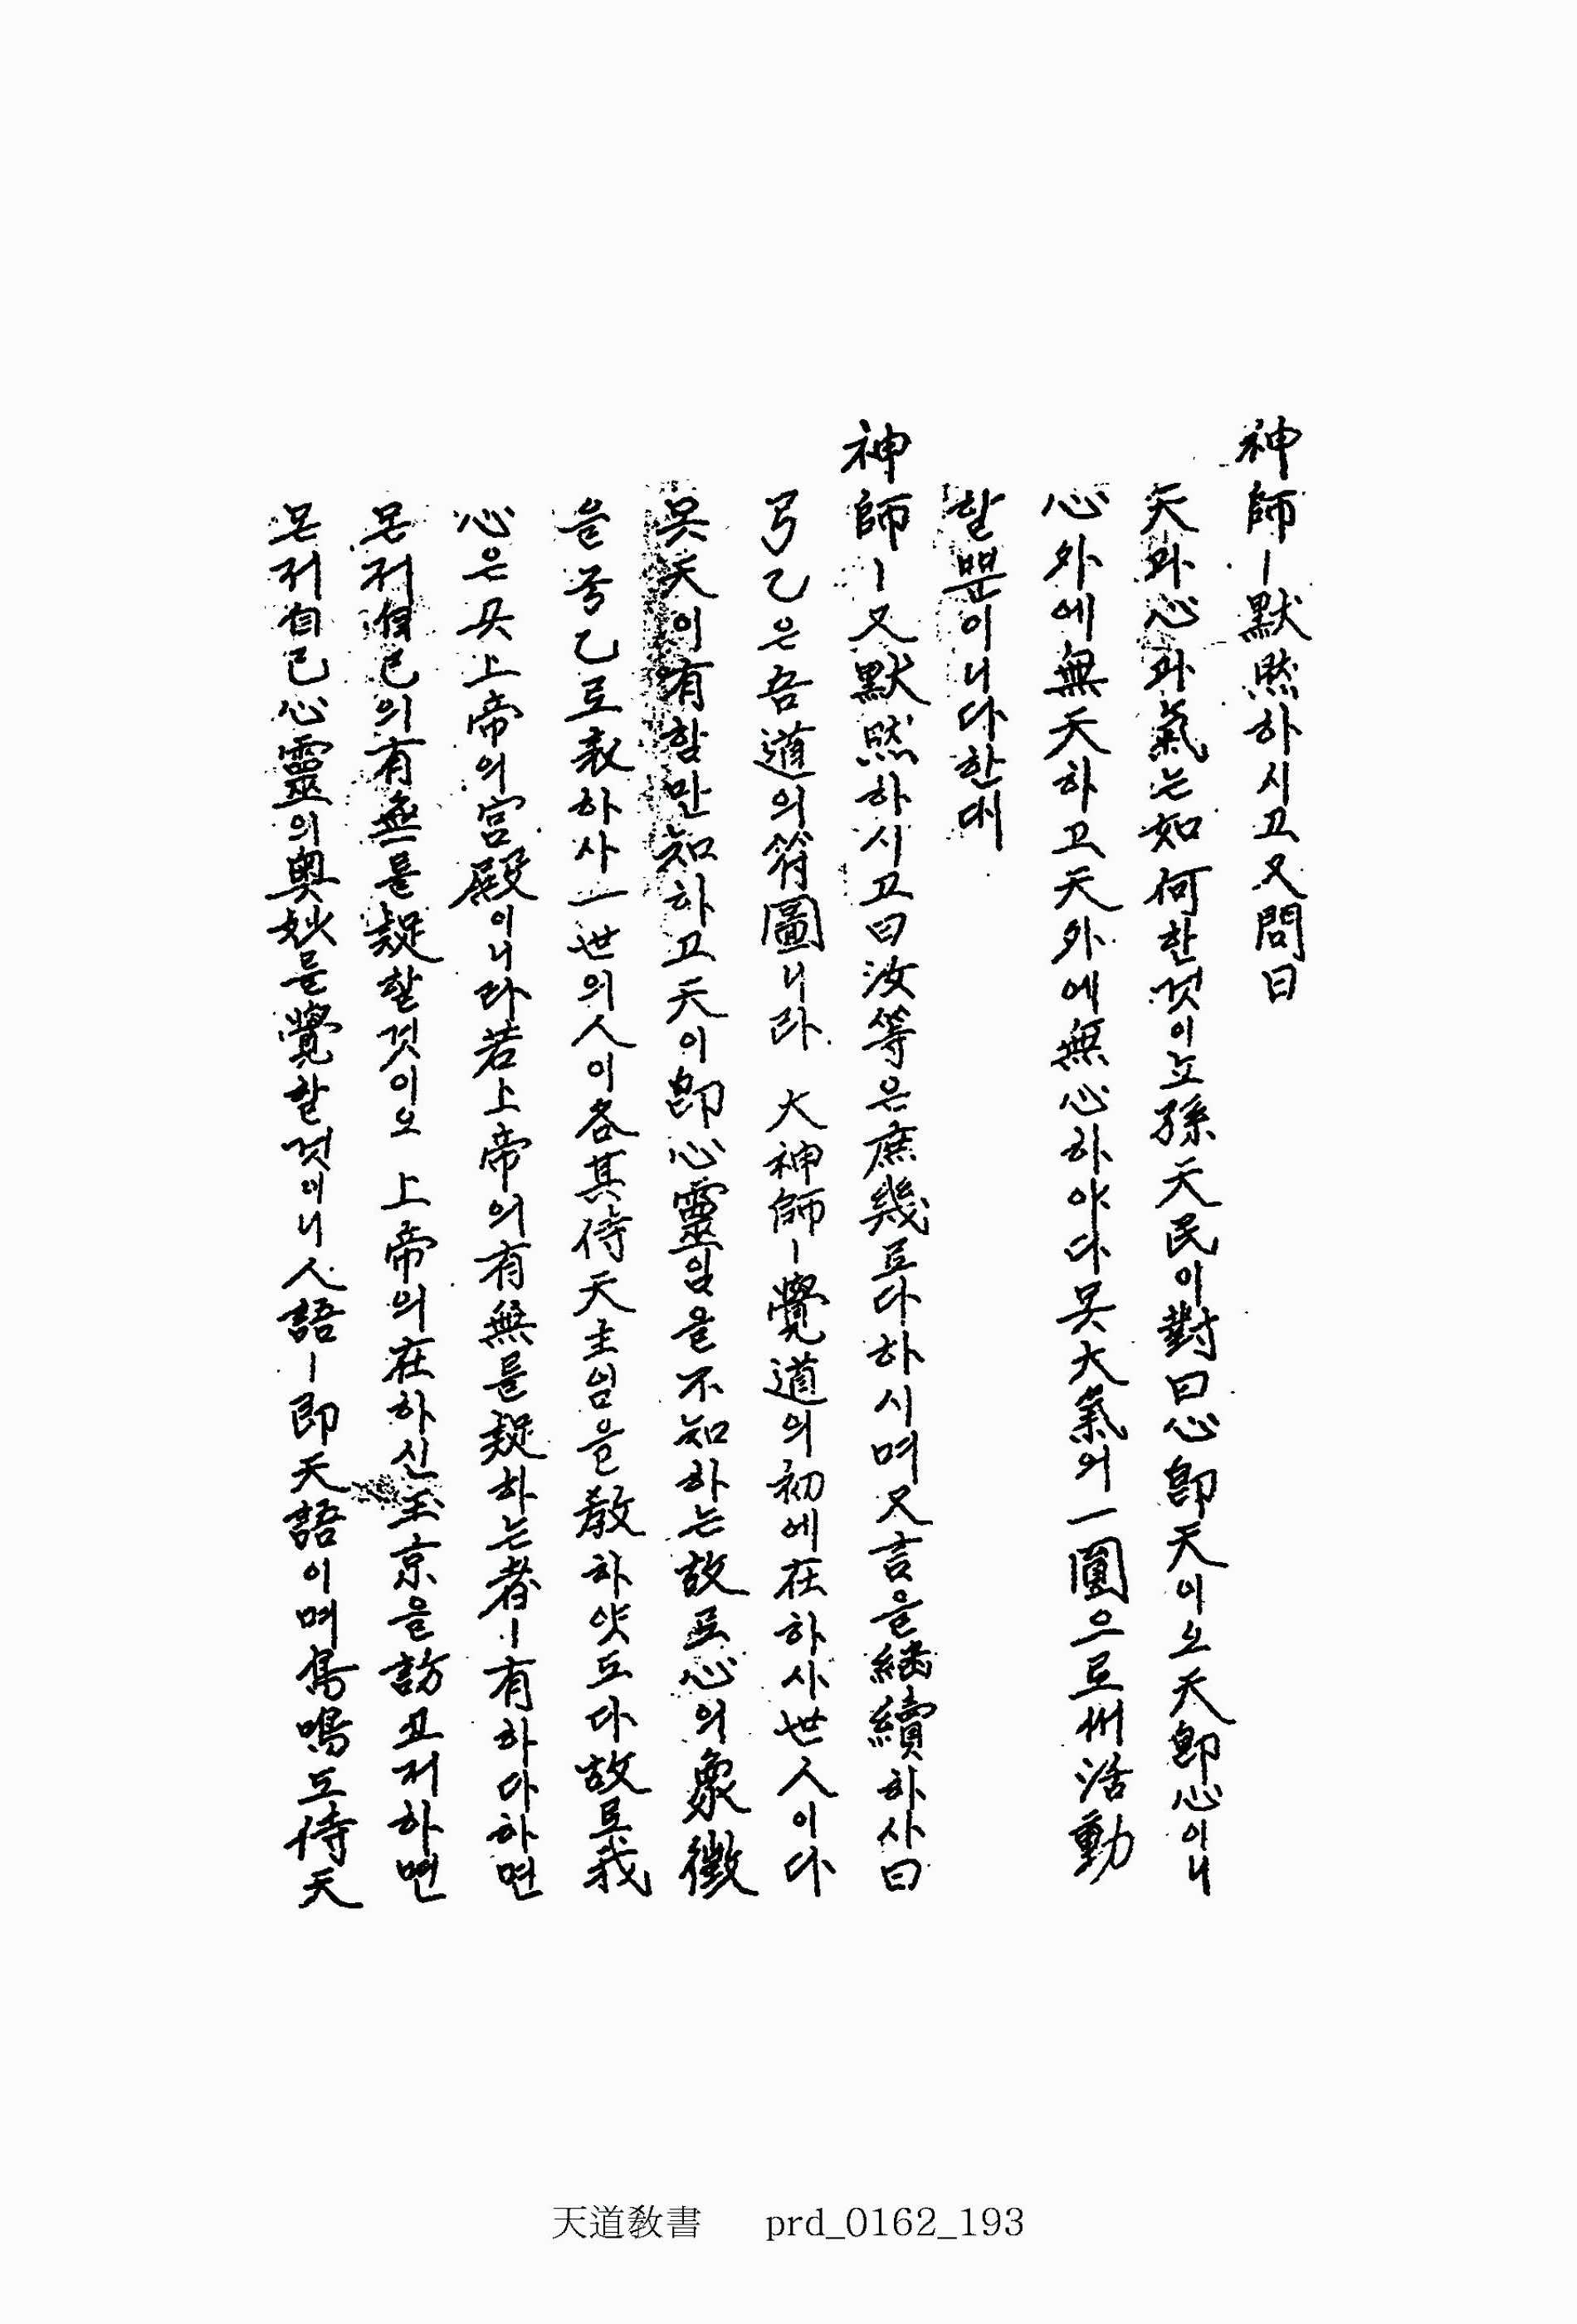 神師ㅣ默然하시고又問曰
天과心과氣는如何한것이뇨孫天民이對曰心卽天이오天卽心이니
心外에無天하고天外에無心하야다못大氣의一圓으로써活動
할뿐이니다한대
神師ㅣ又默然하시고曰汝等은庶幾로다하시며又言을繼續하사曰
弓乙은吾道의符圖니라 大神師ㅣ覺道의初에在하사世人이다
못天이有함만知하고天이卽心靈임을不知하는故로心의象徵
을弓乙로表하사一世의人이各其侍天主임을敎하얏도다故로我
心은곳上帝의宮殿이니라若上帝의有無를疑하는者ㅣ有하다하면
몬저自己의有無를疑할것이오 上帝의在하신玉京을訪고저하면
몬저自己心靈의奧妙를覺할것이니人語ㅣ卽天語이며鳥鳴도侍天
天道敎書 prd_0162_193